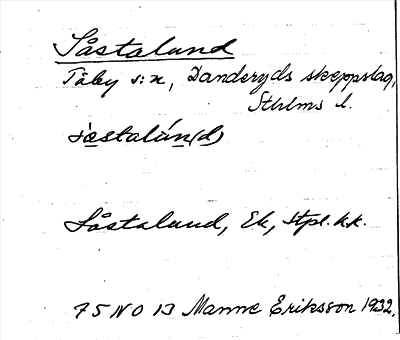 Såstalund
Täby s:n, Danderyds skeppslag,
Sthlms l.
såstalún(d)
Såstalund, Ek, stpl. kk.
75 NO 13 Manne Eriksson 1932.